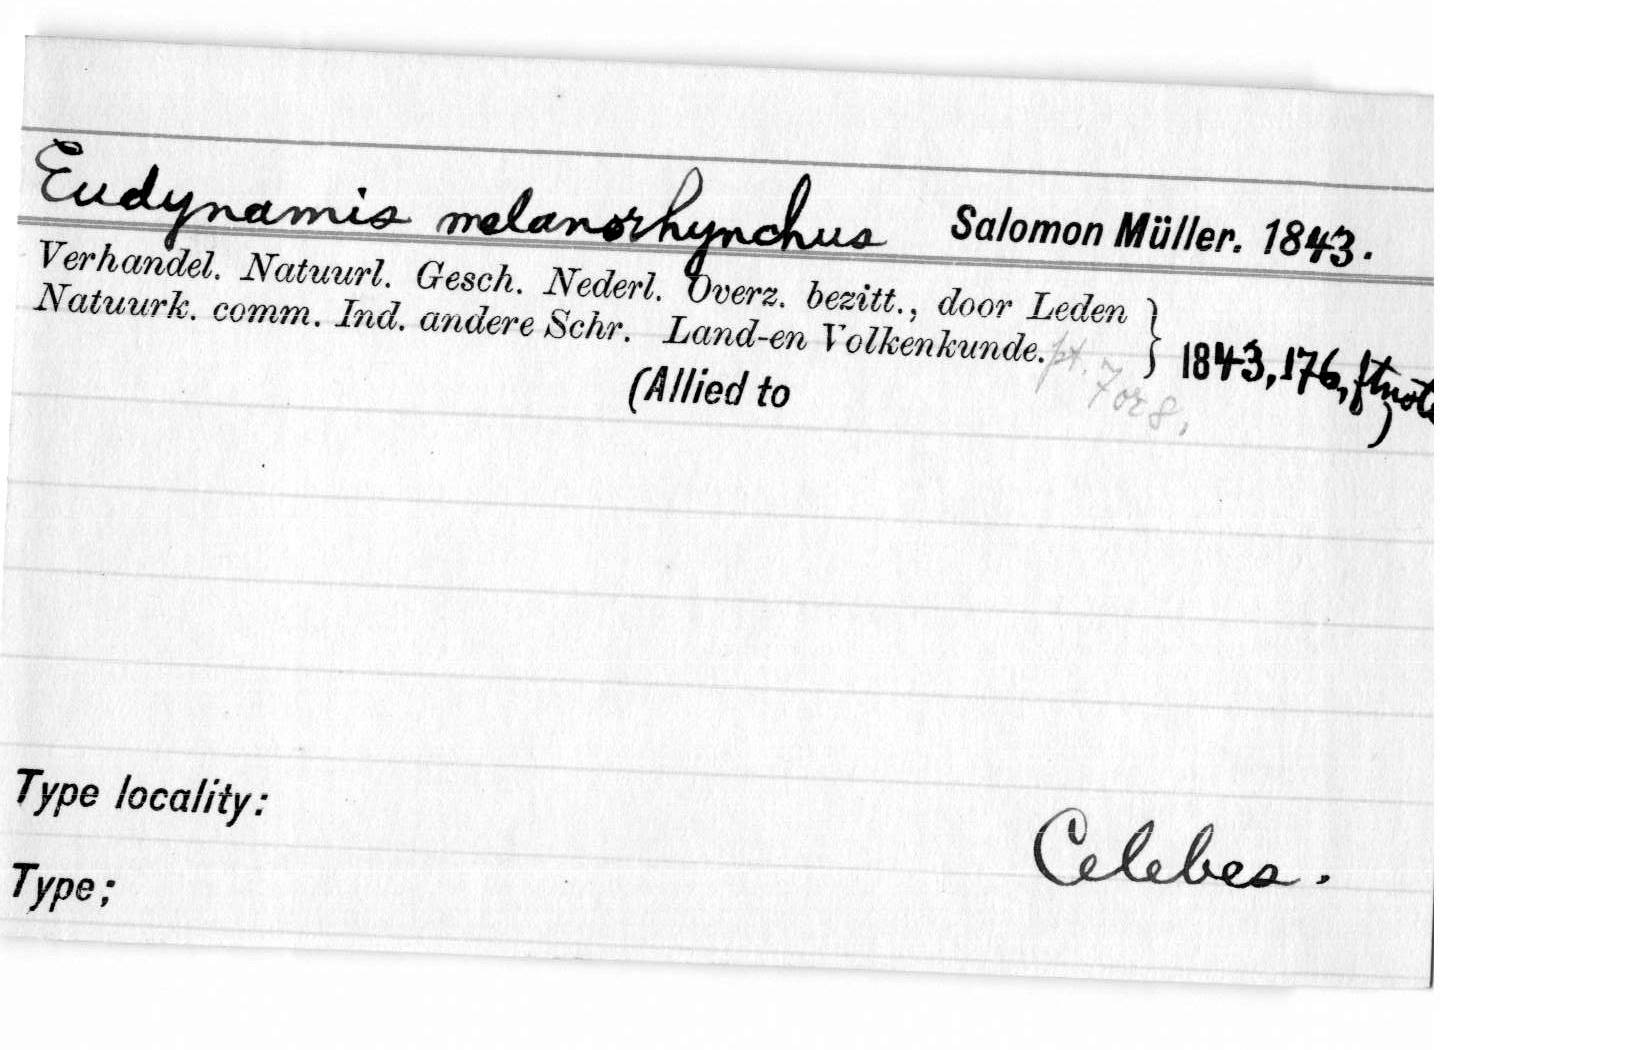 Eudynamis melanorhynchus Salomon Müller. 1843.
Verhandel. Natuurl. Gesch. Nederl. Overz. bezitt., door Leden
Natuurk. comm. Ind. andere Schr. Land-en Volkenkunde. } 1843, 176, ftnote
pt. 7 or 8,
(Allied to )
Type locality:
Celebes.
Type;